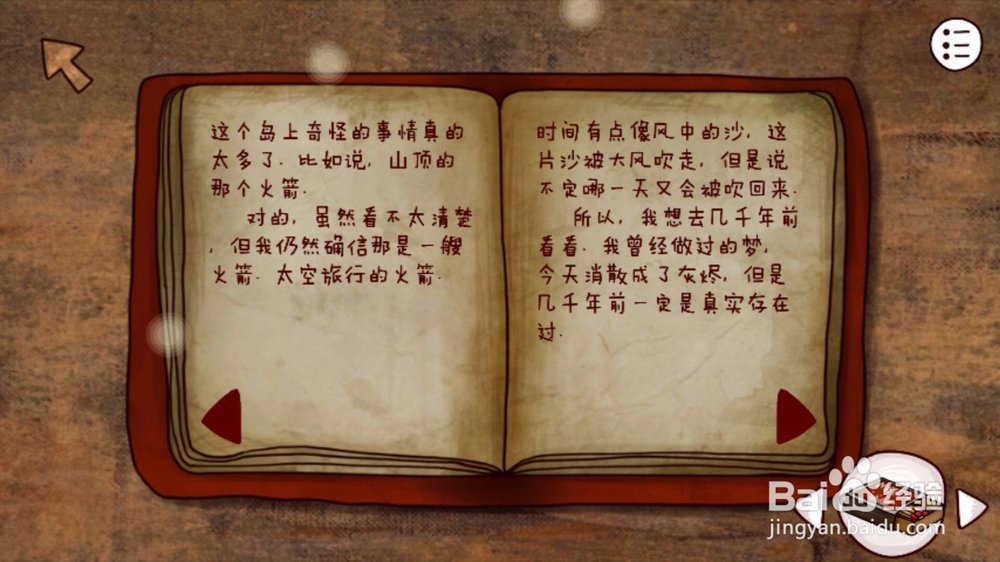 这个岛上奇怪的事情真的
太多了. 比如说, 山顶的
那个火箭.
对的, 虽然看不太清楚
, 但我仍然确信那是一艘
火箭. 太空旅行的火箭.
时间有点像风中的沙, 这
片沙被大风吹走, 但是说
不定哪一天又会被吹回来.
所以, 我想去几千年前
看看. 我曾经做过的梦,
今天消散成了灰烬, 但是
几千年前一定是真实存在
过.
Bai 经验
jingyan.baidu.com